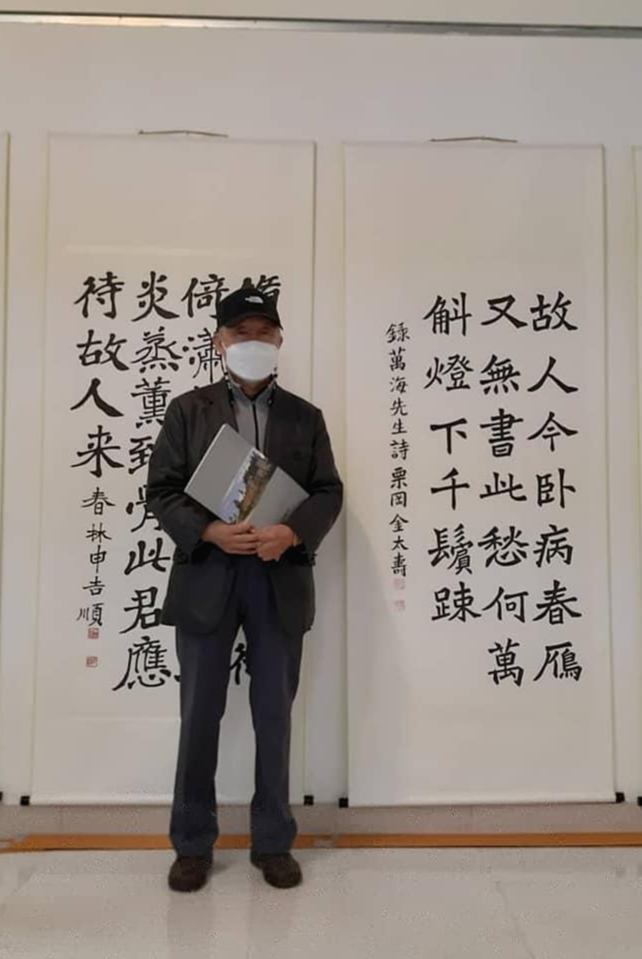 故人今卧病春鴈
又無書此愁何萬
斛燈下千鬢踈
錄萬海先生詩 栗岡 金太壽
倚瀟
炎蒸薰到骨此君應
待故人来
春林申吉順